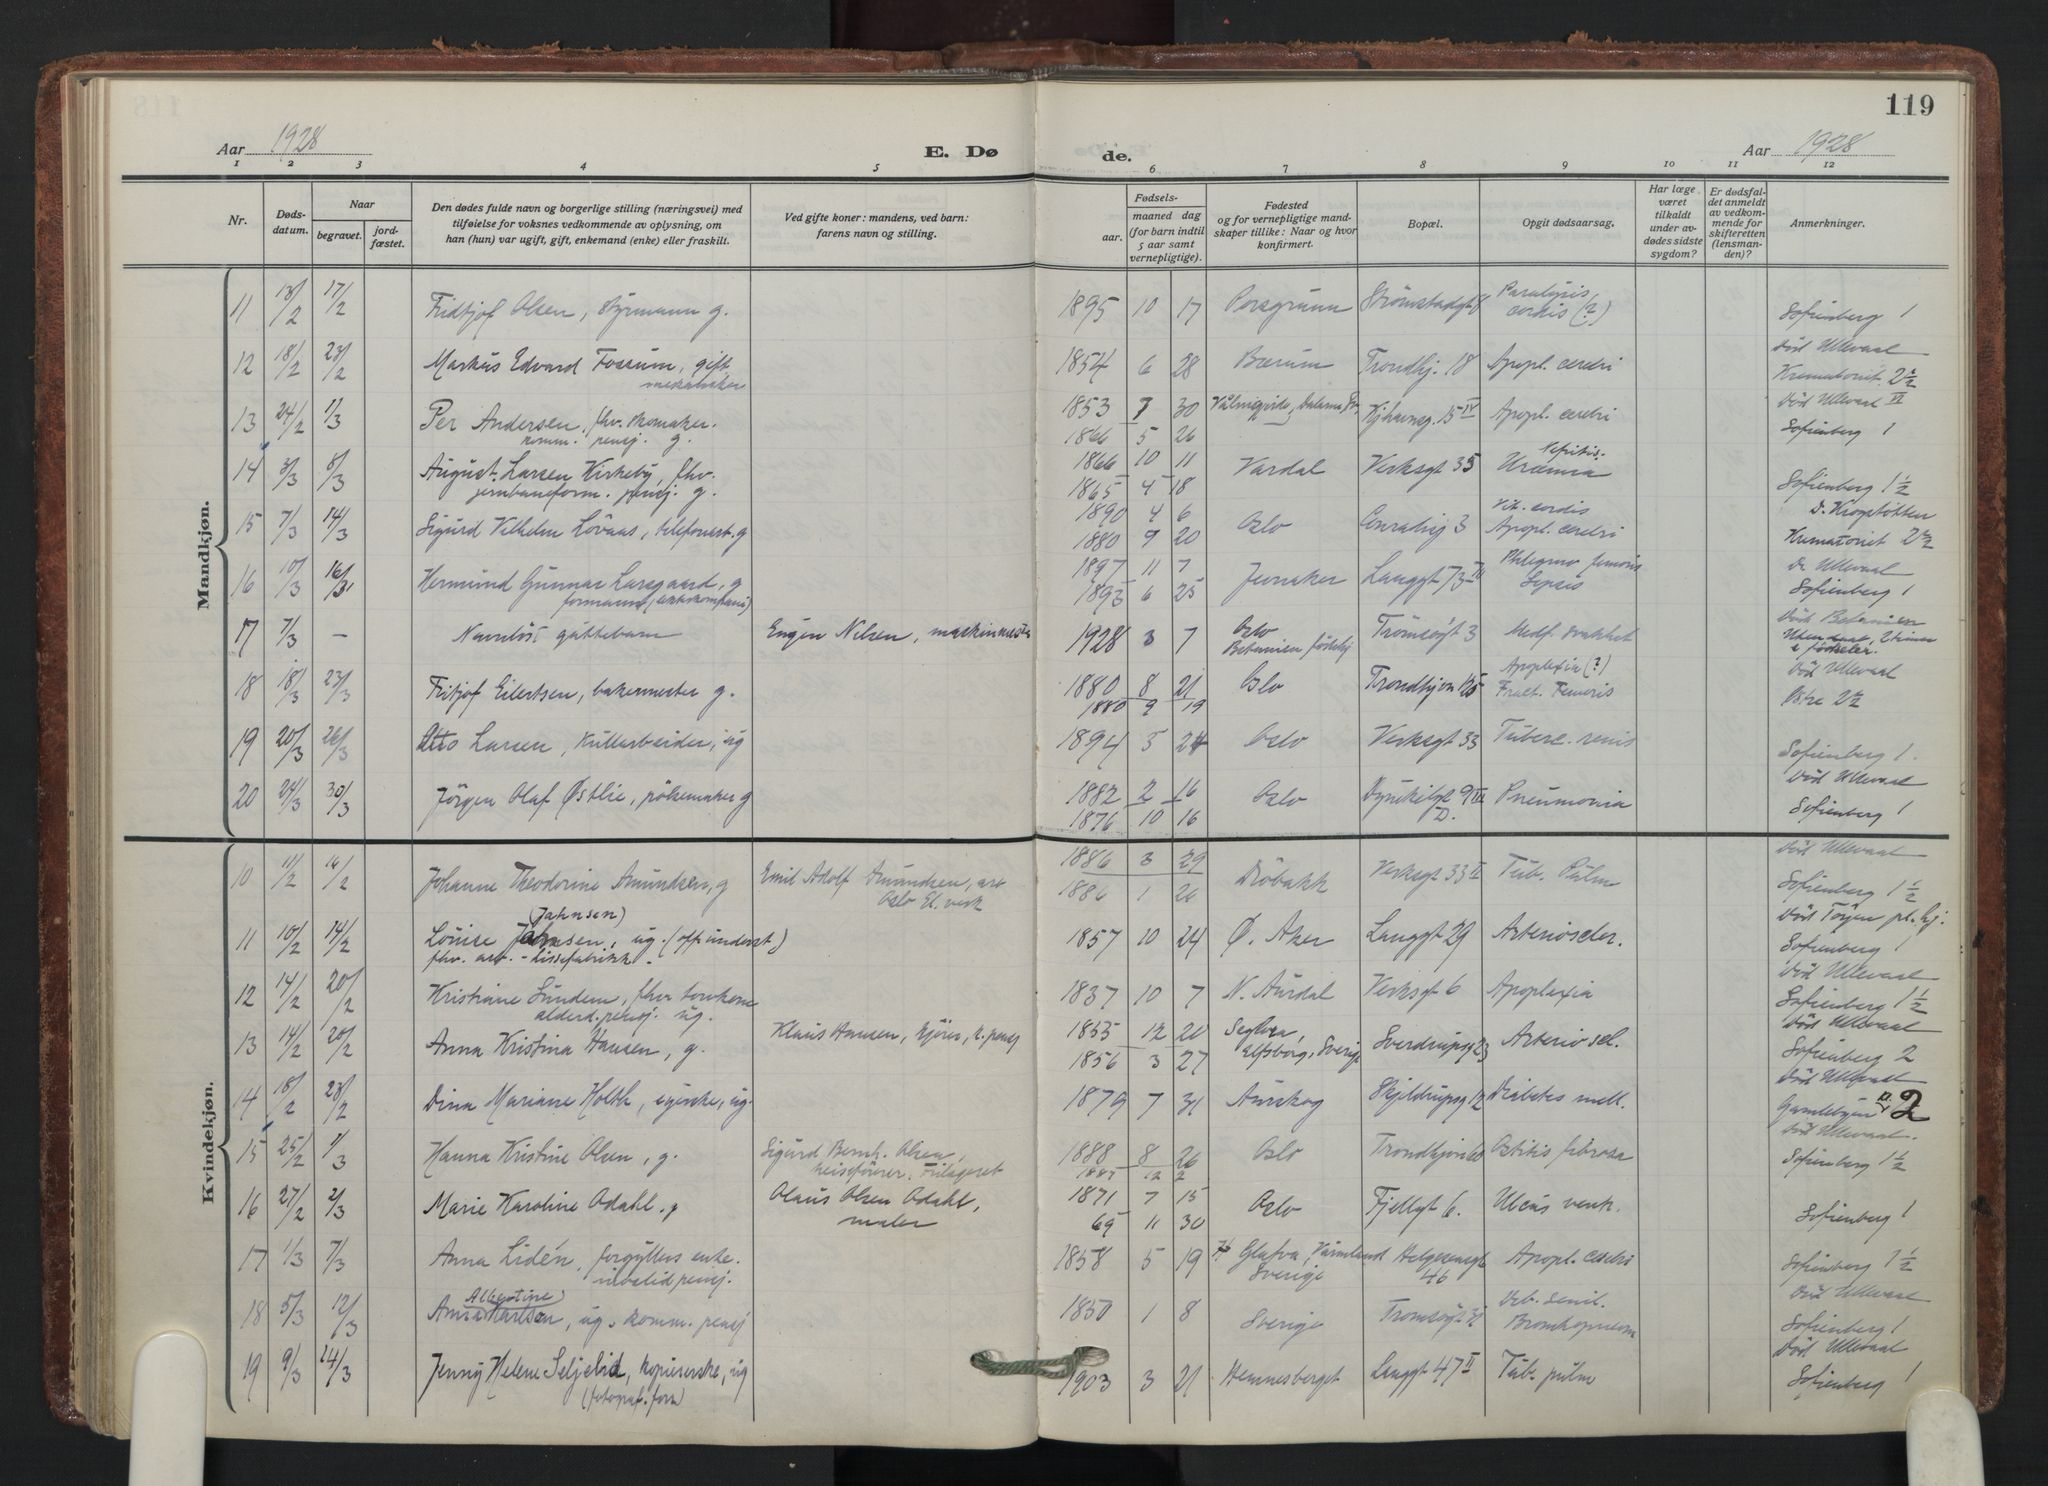 119
Aar 1928
E. Dø
de.
Aar 1928
1 2 3 4 5 6 7 8 9 10 11 12
Nr.
Døds-
datum.
Naar
begravet.
jord-
fæstet.
Den dødes fulde navn og borgerlige stilling (næringsvei) med
tilføielse for voksnes vedkommende av oplysning, om
han (hun) var ugift, gift, enkemand (enke) eller fraskilt.
Ved gifte koner: mandens, ved barn:
farens navn og stilling.
Fødsels-
aar.
maaned dag
(for barn indtil
5 aar samt
vernepligtige).
Fødested
og for vernepligtige mand-
skaper tillike: Naar og hvor
konfirmert.
Bopæl.
Opgit dødsaarsag.
Har læge
været
tilkaldt
under av-
dødes sidste
sygdom?
Er dødsfal-
det anmeldt
av vedkom-
mende for
skifteretten
(lensman-
den)?
Anmerkninger.
Mandkjøn.
11 13/2 17/2 Fridtjof Olsen, styrmann g. 1895 10 17 Porsgrunn Strömstadgt Paralysis cordis (?) Sofienberg 1
12 18/2 23/2 Markus Edvard Fossum, gift 1854 6 28 Bærum Trondhj. 18 Apopl. cerebri Död Ullevaal
Krematoriet
13 24/2 1/3 Per Andersen, fhv. skomaker. 1853 7 30 Kjhavnsg. 15 IV Apopl. cerebri Död Ullevaal
komm. pensj. g. 1866 5 26 Sofienberg 1
14 3/3 8/3 August Larsen Kirkeby, fhv. 1866 10 11 Vardal Verksgt 35 Nefritis. Uræmia
jernbaneform. pensj. g. 1865 4 18 Sofienberg 1 1/2
15 7/3 14/3 Sigurd Vilhelm Lövaas, telefonarb. g 1890 4 6 Oslo Conradisg 3 Vit. cordis D. Krogstötten
1880 9 20 Apopl. cerebri Krematoriet
16 10/3 16/3 Hermund Gunnar Larsgaard, g 1897 11 7 Jevnaker Langgt 73 III Phlegmo femoris D. Ullevaal
1893 6 25 Sepsis Sofienberg 1
17 7/3 — Navnlöst guttebarn Eugen Nilsen, maskinmester 1928 3 7 Oslo Tromsögt 3 Medf. svakhet Död Betanien
Betanien födehj
18 18/3 23/3 Fritjof Eilertsen, bakermester g. 1880 8 21 Oslo Trondhjem Apoplexia (?) Död Ullevaal
1880 9 19 Fract. Femoris Östre
19 20/3 26/3 Otto Larsen, kullarbeider, ug 1894 5 24 Oslo Verksgt 33 Tuberc. renis Sofienberg 1.
20 24/3 30/3 Jörgen Olaf Østlie, pölsemaker g 1882 2 16 Oslo Dynekilgt 9 III Pneumonia Död Ullevaal
1876 10 16 D. Sofienberg 1
Kvindekjøn.
10 11/2 16/2 Johanne Theodorine Amundsen, g Emil Adolf Amundsen, arb 1886 3 29 Dröbakk Verksgt 33 II Tub. Pulm Död Ullevaal
Oslo El. verk 1886 1 26 Sofienberg 1 1/2
(Jahnsen)
11 10/2 14/2 Louise Jahnsen, ug. (off. underst.) 1857 10 24 Ø. Aker Langgt 29 Arterioscler. Död Töyen pl. hj.
fhv. arb. - lissefabrikk. Sofienberg 1
12 14/2 20/2 Kristiane Sundem, fhv 1837 10 7 N. Aurdal Verksgt 6 Apoplexia Död Ullevaal
alderd. pensj. ug. Sofienberg 1 1/2
13 14/2 20/2 Anna Kristina Hansen, g. Klaus Hansen, kjörer, k. pensj 1855 12 20 Arterioscl. Död Ullevaal
1856 3 27 Elfsborg, Sverige Sverdrupsg 23 Sofienberg 2
14 18/2 23/2 Dina Mariane Holth, syerske, ug. 1879 7 31 Aurskog Skjeldrupsg 12 Diabetes mell. Död Ullevaal
Gamlebyen 2
15 25/2 1/3 Hanna Kristine Olsen, g. Sigurd Bernh. Olsen, 1888 8 26 Oslo Trondhjem 60 Ostitis fibrosa Död Ullevaal.
heisförer. 12 2 Sofienberg 1 1/2
16 27/2 2/3 Marie Karoline Odahl, g Olaus Olsen Odahl, 1871 7 15 Oslo Fjellgt 6. Ulcus ventr.
maler 69 11 30 Sofienberg 1
17 1/3 7/3 Anna Lidén, forgyllers enke. 1858 5 19 Glafva, Värmland Helgesensgt Apopl. cerebri Sofienberg 1 1/2
invalid pensj. Sverige 46
Albertine
18 5/3 12/3 Anna Karlson, ug. komm. pensj 1850 1 8 Sverige Tromsögt Deb. senil. Död Ullevaal
Bronkopneum Sofienberg 1
19 9/3 14/3 Jenny Helene Seljelid, kopiererske, ug 1903 3 21 Hemnesberget Langgt 47 II Tub. pulm Död Ullevaal
(fotograf. forr) Sofienberg 1